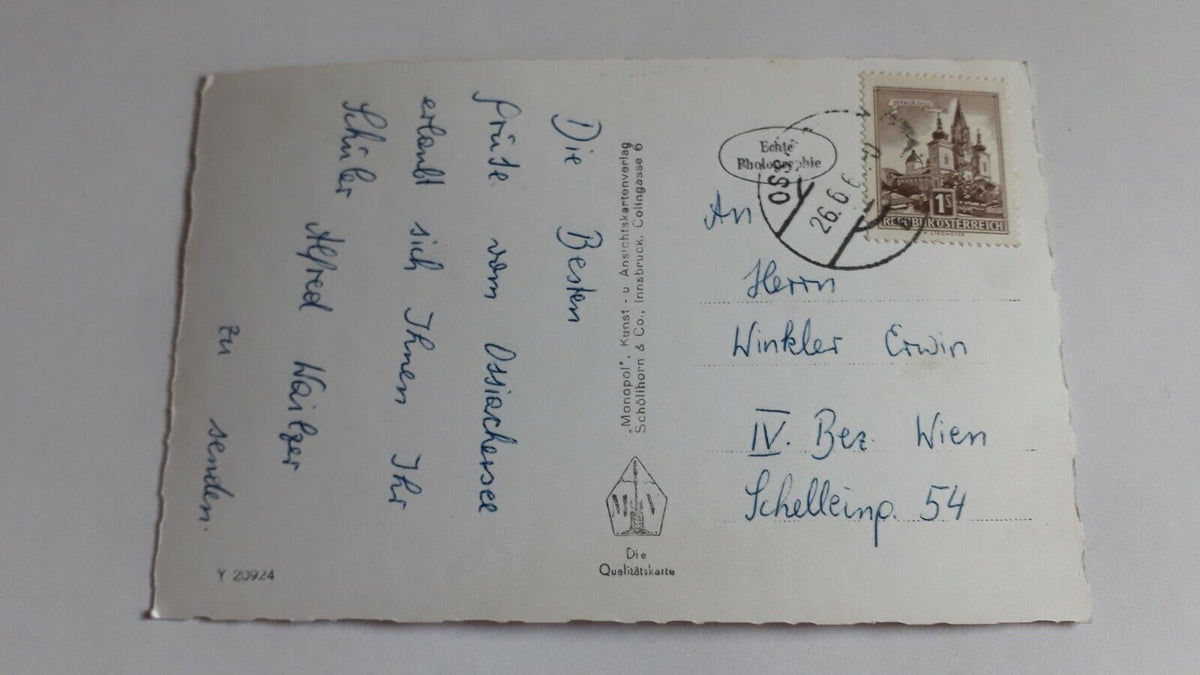 Die Besten
Grüße vom Ossiachersee
erlaubt sich Ihnen Ihr
Schüler Alfred
zu senden.
Y 20924
„Monopol“, Kunst - u Ansichtskartenverlag
Schöllhorn & Co., Innsbruck, Colingasse 6
Die
Qualitätskarte
Echte
Photographie
OSS
26.6.6
MARIAZELL
1S
REPUBLIK ÖSTERREICH
An
Herrn
Winkler Erwin
IV. Bez. Wien
Schelleing. 54